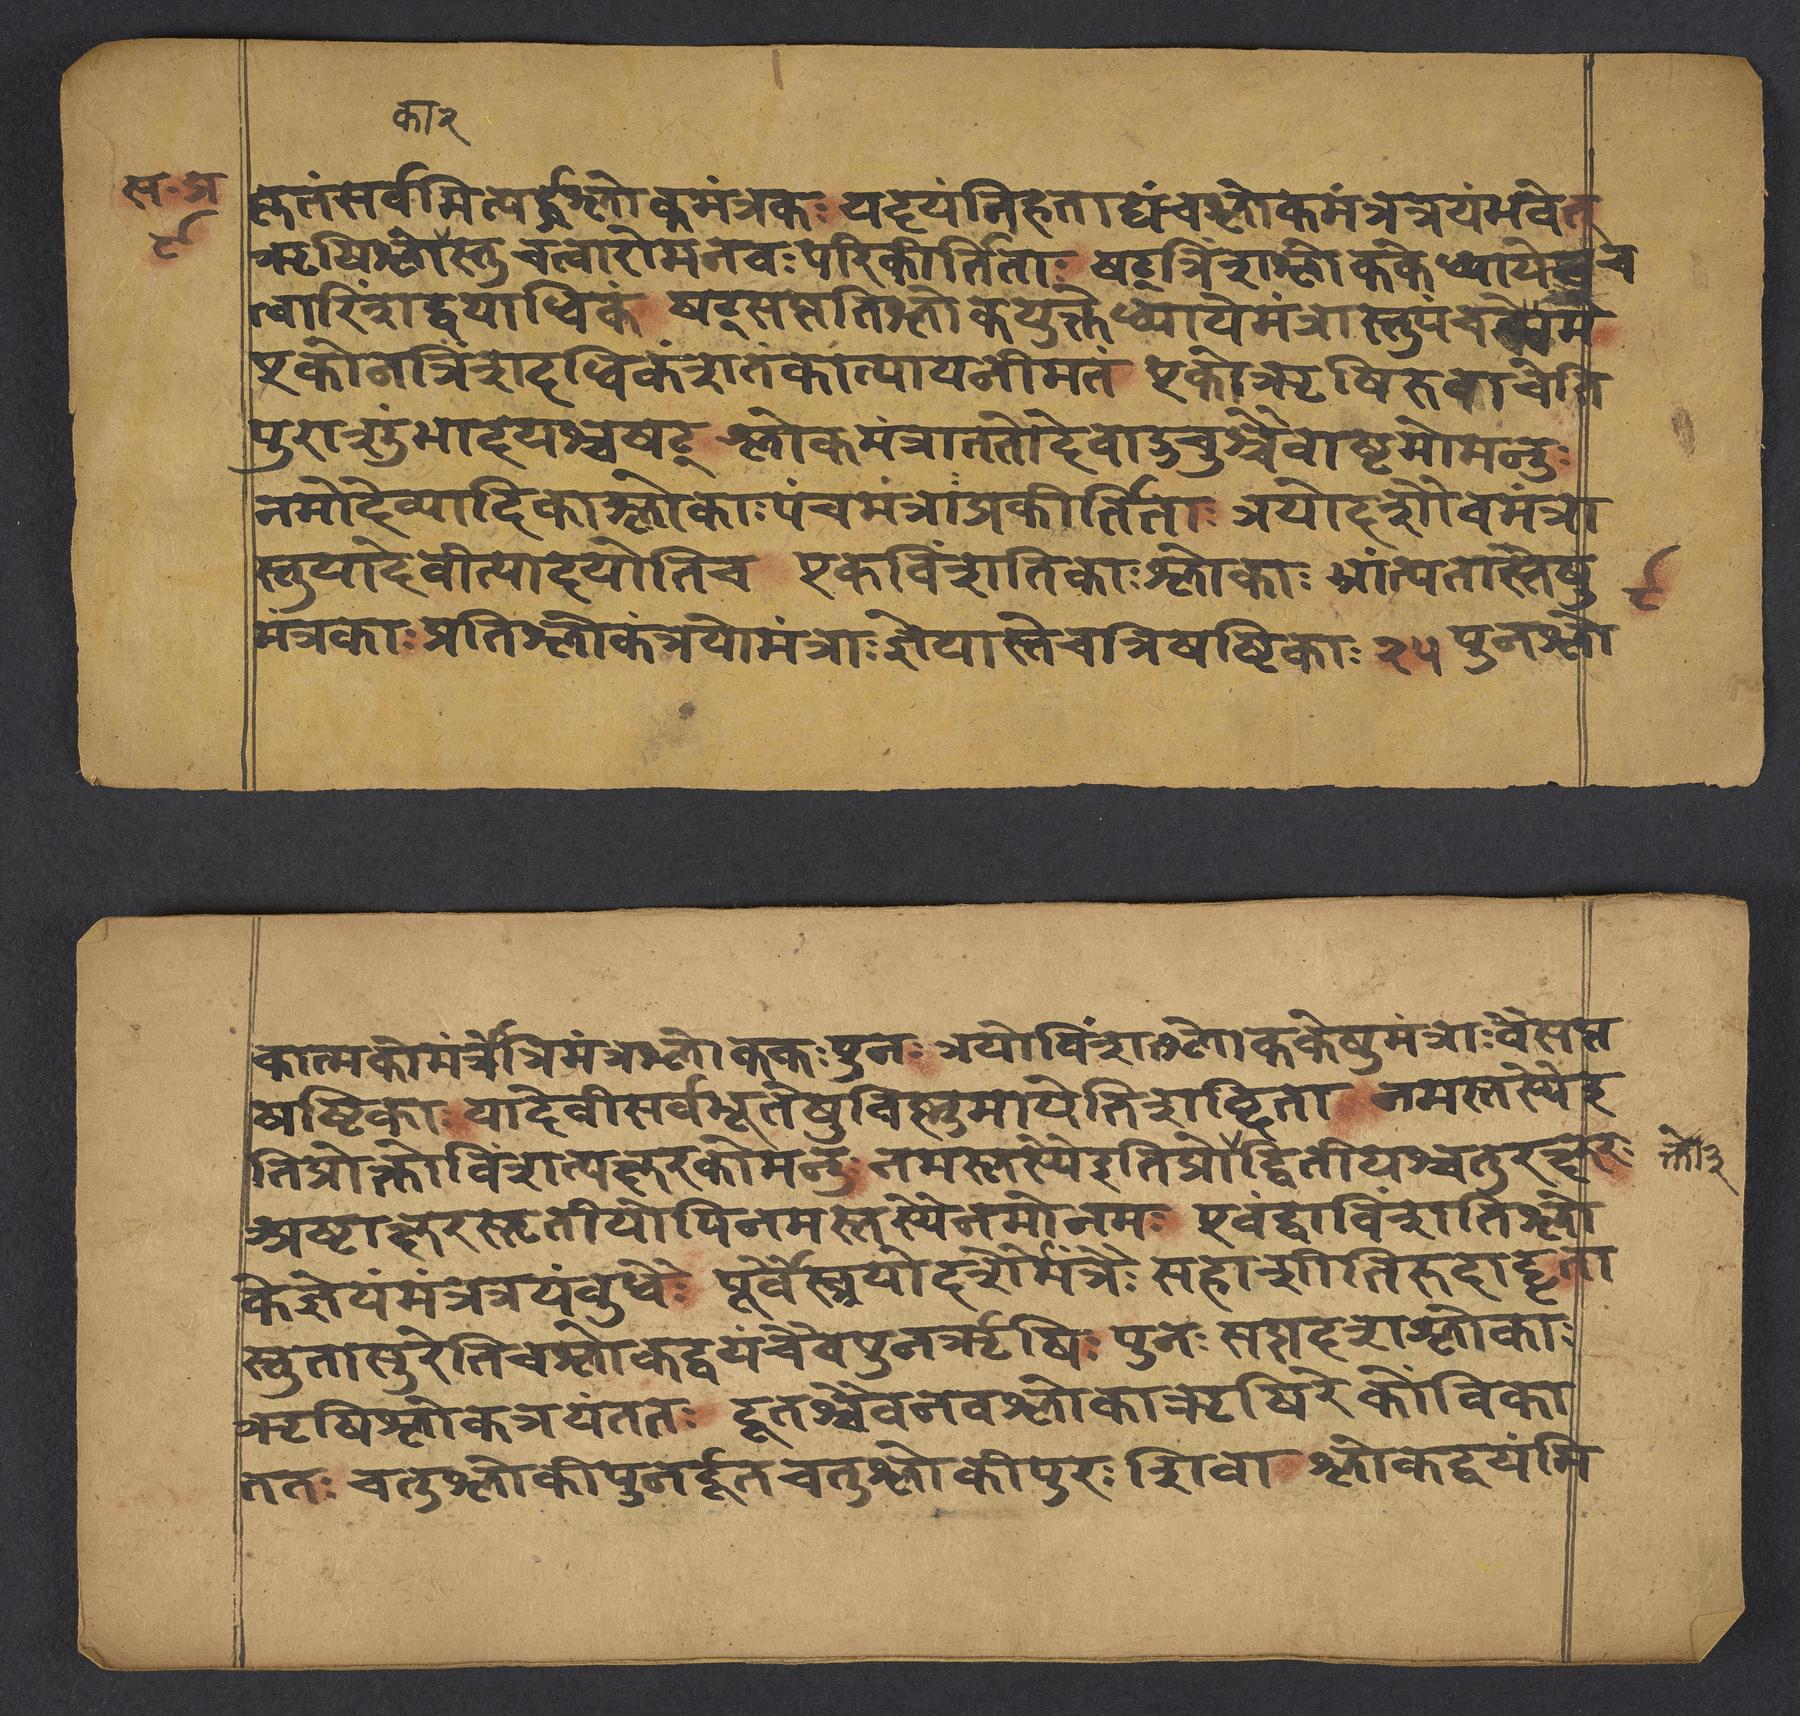 का२
स॰ज
९
क्षतंसर्वमित्यर्द्धश्लोकमंत्रकः यद्दयंनिहताद्यंचश्लोकमंत्रत्रयंभवेत्
ऋषिश्लोस्तुचत्वारोमनवःपरिकीर्तिताः षट्त्रिंशश्लोककेध्याये च
त्वारिंशद्वयाधिकं षट्सप्ततिश्लोकयुक्तेध्यायेमंत्रास्तुपंचमे
एकोनत्रिंशदधिकंशतंकात्यायनीमतं एकोऋषिरुवाचेति
पुराशुंभादयश्चषट् श्लोकमंत्राततोदेवाउचुश्चैवाष्टमोमनुः
नमोदेव्यादिकाश्लोकाःपंचमंत्राजकीर्तिताः त्रयोदशैवमंत्रा
स्तुयादेवीत्यादयोतिच एकविंशतिकाःश्लोकाः भ्रांत्यतास्तेषु
मंत्रकाः प्रतिश्लोकंत्रयोमंत्राःज्ञेयास्तेचत्रिषष्टिकाः २५ पुनश्लो
९
कात्मकोमंत्रेत्रिमंत्रश्लोककः पुनः त्रयोविंशश्लोककेषुमंत्राःवैसप्त
षष्टिकाः यादेवीसर्वभूतेषुविष्णुमायेतिशब्दिता नमस्तस्येइ
तिप्रोक्तोविंशत्यक्षरकोमनुः नमस्तस्येइतिप्रोद्वितीयश्चतुरक्षरः
क्तो३
अष्टाक्षरस्तृतीयोपिनमस्तस्येनमोनमः एवंद्वाविंशतिश्लो
केज्ञेयंमंत्रत्रयंवुधैः पूर्वैस्त्रयोदशैर्मंत्रैः सहाशीतिरुदाहृता
स्तुतासुरेतिचश्लोकद्वयंचैवपुनर्ऋषिः पुनः सप्तदशश्लोकाः
ऋषिश्लोकत्रयंततः दूतश्चैवनवश्लोकाऋषिरेकोविका
ततः चतुश्लोकीपुनर्दूतचतुश्लोकीपुरः शिवा श्लोकद्वयंमि